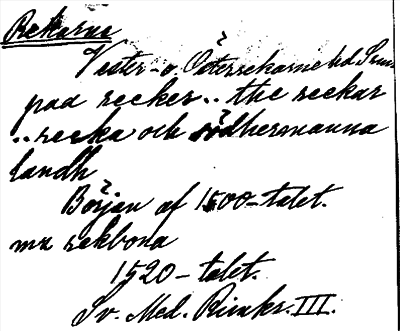 Rekarne
Vester- o. Österrekarne hd
paa reeker .. the reekar
.. reeka och södhermanna
landh
Början af 1500-talet.
mz rekbona
1520-talet.
Sv. Med. Rimkr. III.